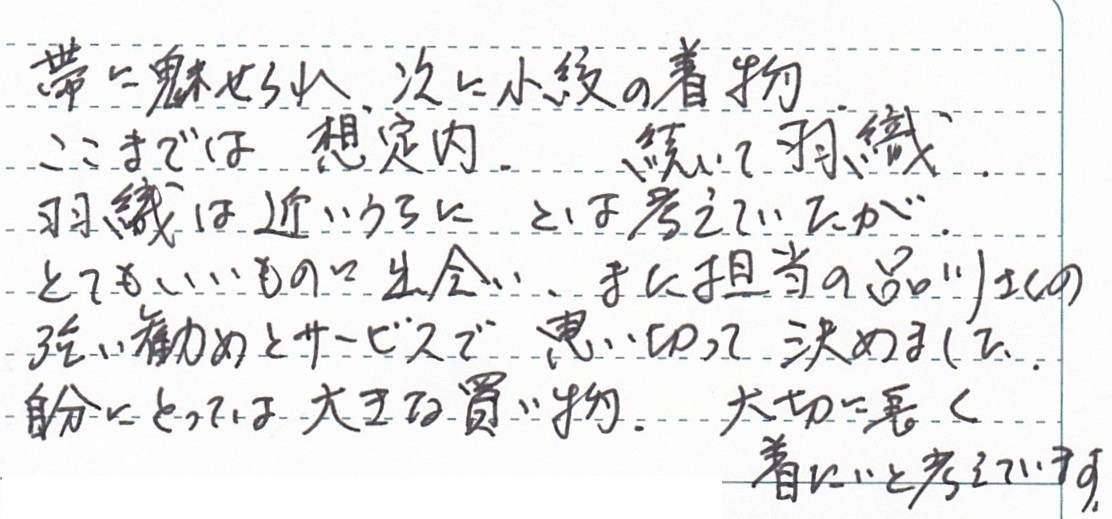 帯に魅せられ、次に小紋の着物.
ここまでは 想定内. 続いて羽織.
羽織は近いうちに とは考えていたが.
とてもいいものに出会い、また担当の品川さんの
強い勧めとサービスで 思い切って 決めました.
自分にとっては大きな買い物. 大切に長く
着たいと考えています.